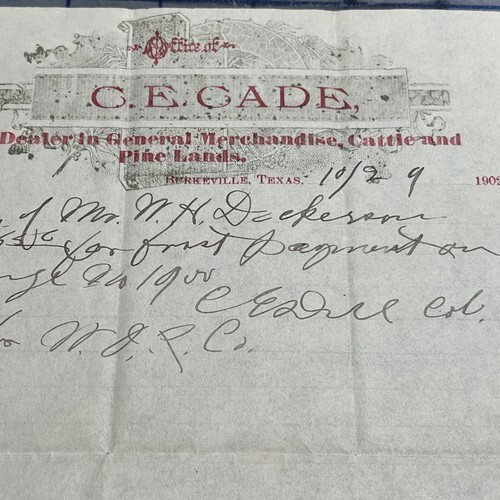 Office of
C. E. CADE,
Dealer in General Merchandise, Cattle and
Pine Lands.
BURKEVILLE, TEXAS, 10/29 190
of Mr. W. H. Dickerson
for first payment on
No 1900
C E Col.
W. Co.